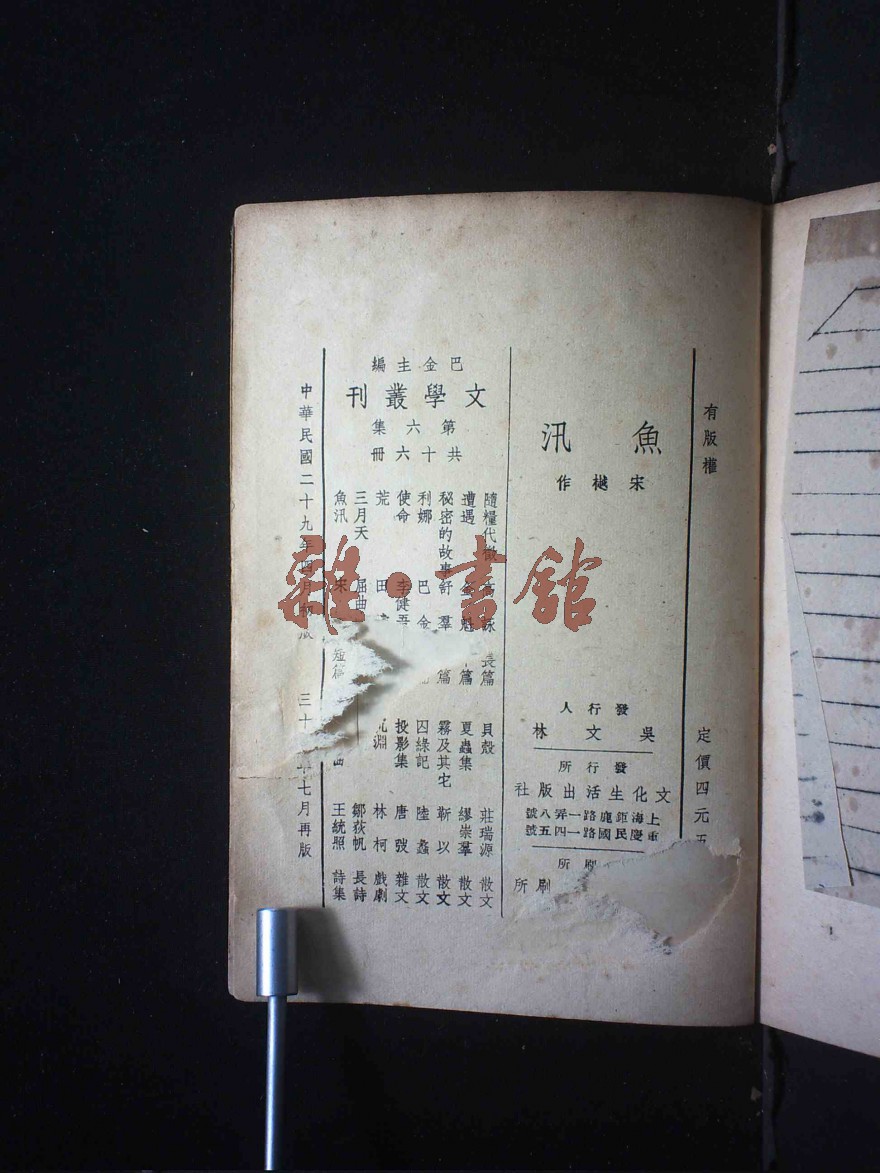 有版權
定價四元五
魚汛
宋樾作
發行人
吳文林
發行所
文化生活出版社
上海鉅鹿路一弄八號
重慶民國路一四五號
刷所
刷所
巴金主編
文學叢刊
第六集
共十六冊
隨糧代徵 長篇
遭遇 篇
秘密的故事 舒羣 篇
利娜 巴金
使命 李健吾
荒 田
三月天 屈曲
魚汛 宋 短篇
貝殼 莊瑞源 散文
夏蟲集 繆崇羣 散文
霧及其它 靳以 散文
囚綠記 陸蠡 散文
投影集 唐弢 雜文
沉淵 林柯 戲劇
鄒荻帆 長詩
曲 王統照 詩集
中華民國二十九年四月初版
三十 七月再版
雜·書館
1